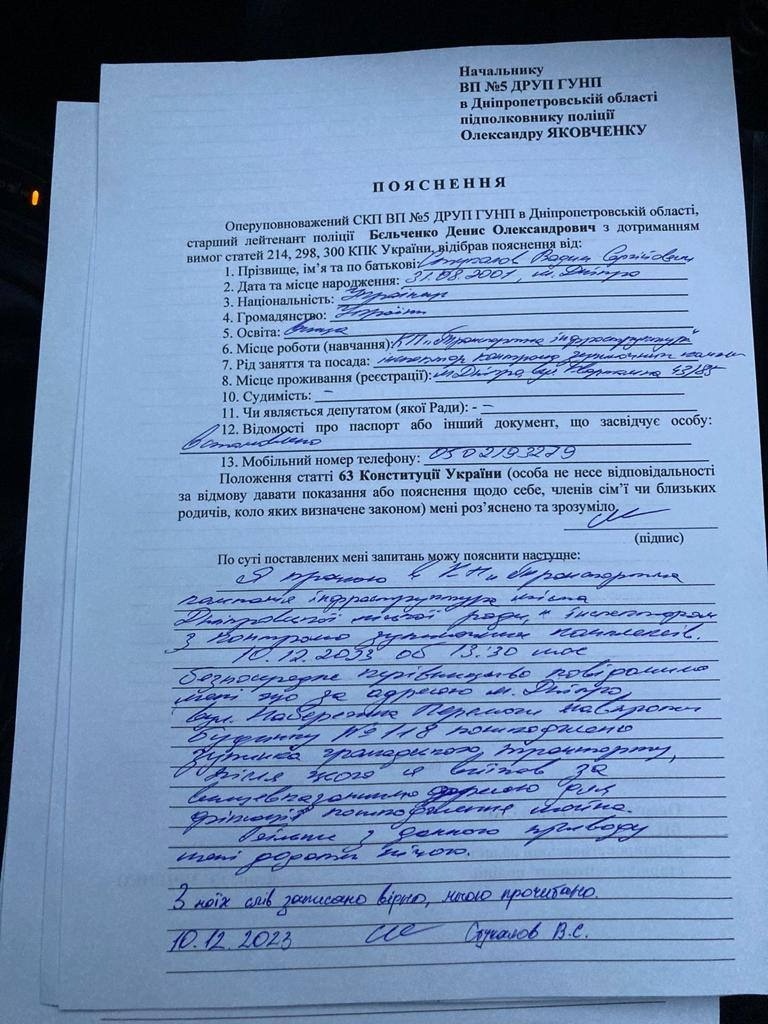 Начальнику
ВП №5 ДРУП ГУНП
в Дніпропетровській області
підполковнику поліції
Олександру ЯКОВЧЕНКУ
ПОЯСНЕННЯ
Оперуповноважений СКП ВП №5 ДРУП ГУНП в Дніпропетровській області,
старший лейтенант поліції Бєльченко Денис Олександрович з дотриманням
вимог статей 214, 298, 300 КПК України, відібрав пояснення від:
1. Прізвище, ім'я та по батькові: Стукалов Вадим Сергійович
2. Дата та місце народження: 31.08.2001, м. Дніпро
3. Національність: Українець
4. Громадянство: України
5. Освіта:
6. Місце роботи (навчання): КП „Транспортна інфраструктура"
7. Рід заняття та посада: інспектор контролю зупиночних
8. Місце проживання (реєстрації): м. Дніпро, вул.
10. Судимість: –
11. Чи являється депутатом (якої Ради): - –
12. Відомості про паспорт або інший документ, що засвідчує особу:
Встановлено
13. Мобільний номер телефону: 0502193279
Положення статті 63 Конституції України (особа не несе відповідальності
за відмову давати показання або пояснення щодо себе, членів сім'ї чи близьких
родичів, коло яких визначене законом) мені роз'яснено та зрозуміло
(підпис)
По суті поставлених мені запитань можу пояснити наступне:
Я працюю в КП „Транспортна
інфраструктура міста
Дніпровської міської ради," інспектором
з контролю зупиночних комплексів.
10.12.2023 об 13:30 моє
безпосереднє керівництво повідомило
мені що за адресою м. Дніпро,
вул. Набережна Перемоги навпроти
будинку №118 пошкоджено
зупинка громадського транспорту,
після чого я виїхав за
вищевказаною адресою для
фіксації пошкодження майна.
Більше з даного приводу
мені додати нічого.
З моїх слів записано вірно, мною прочитано.
10.12.2023 Стукалов В.С.